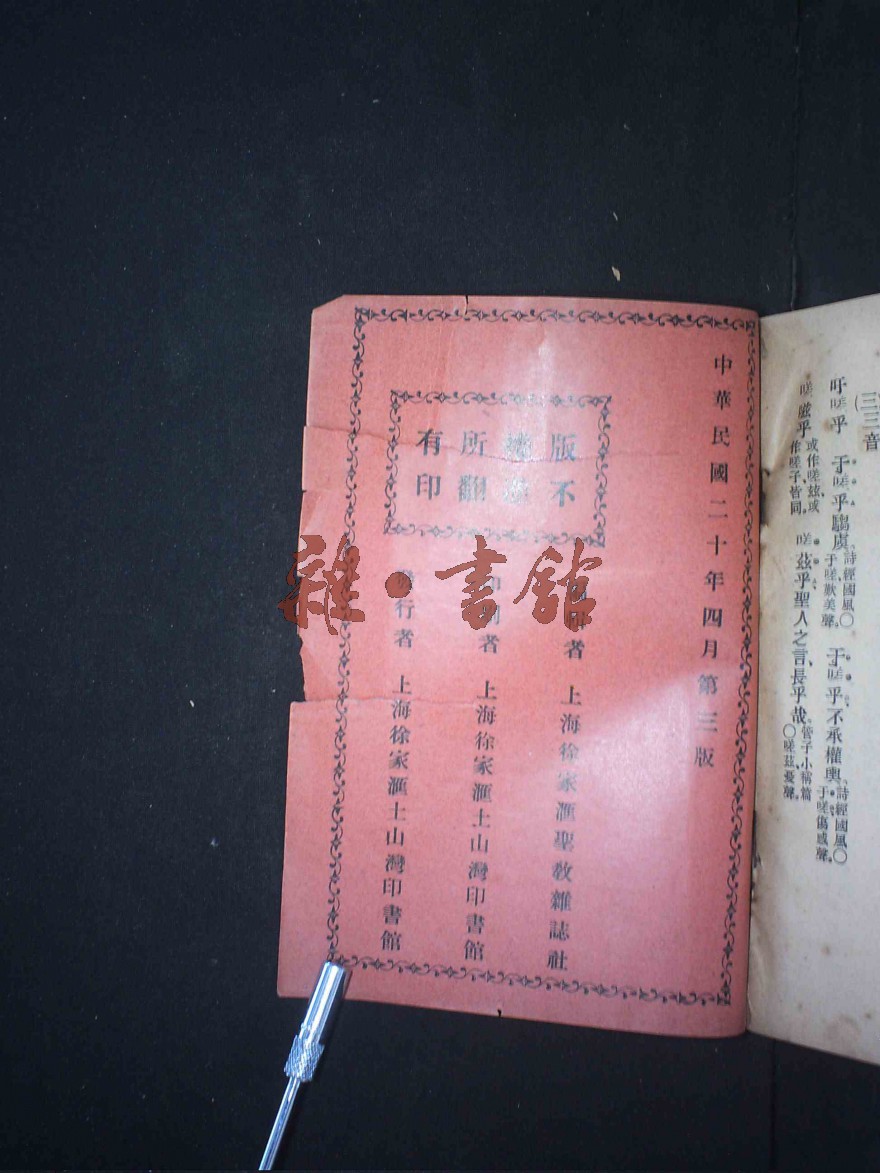 三三音
吁嗟乎 于嗟乎騶虞、詩經國風〇于嗟歎美聲。 于嗟乎不承權輿、詩經國風〇于嗟傷感聲。
嗟茲乎 或作嗟茲、或作嗟子皆同。 嗟茲乎聖人之言、長乎哉。管子小稱篇〇嗟茲憂聲。
中華民國二十年四月第三版
版權所有
不 翻印
者 上海徐家滙聖教雜誌社
印刷者 上海徐家滙土山灣印書館
發行者 上海徐家滙土山灣印書館
雜·書館